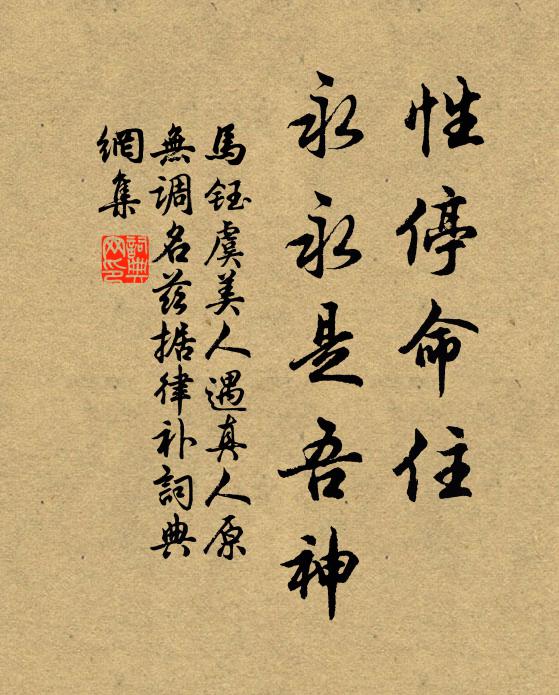 性停命住
永永是吾神
馬鈺虞美人遇真人原
無调名兹据律补詞典
網集
詞典网印